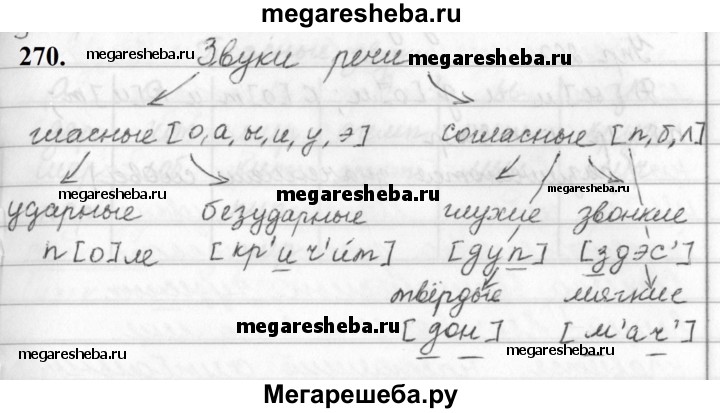 megaresheba.ru
270. megaresheba.ru Звуки речи megaresheba.ru
гласные [о, а, ы, и, у, э] согласные [п, б, л]
megaresheba.ru megaresheba.ru
ударные безударные глухие звонкие
п[о]ле [кр'ич'ит] [дуп] [здэс']
твёрдые мягкие
megaresheba.ru [дон] [м'ач']
megaresheba.ru megaresheba.ru
Мегарешеба.ру